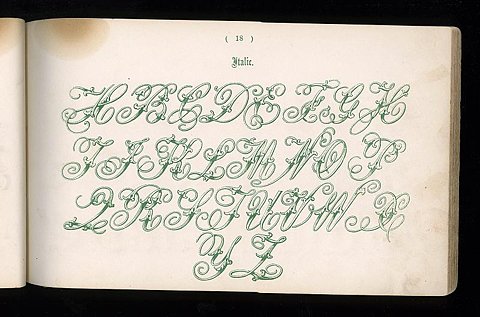 ( 18 )
Italic.
A B C D E F G H
I J K L M N O P
Q R S T U V W X
Y Z